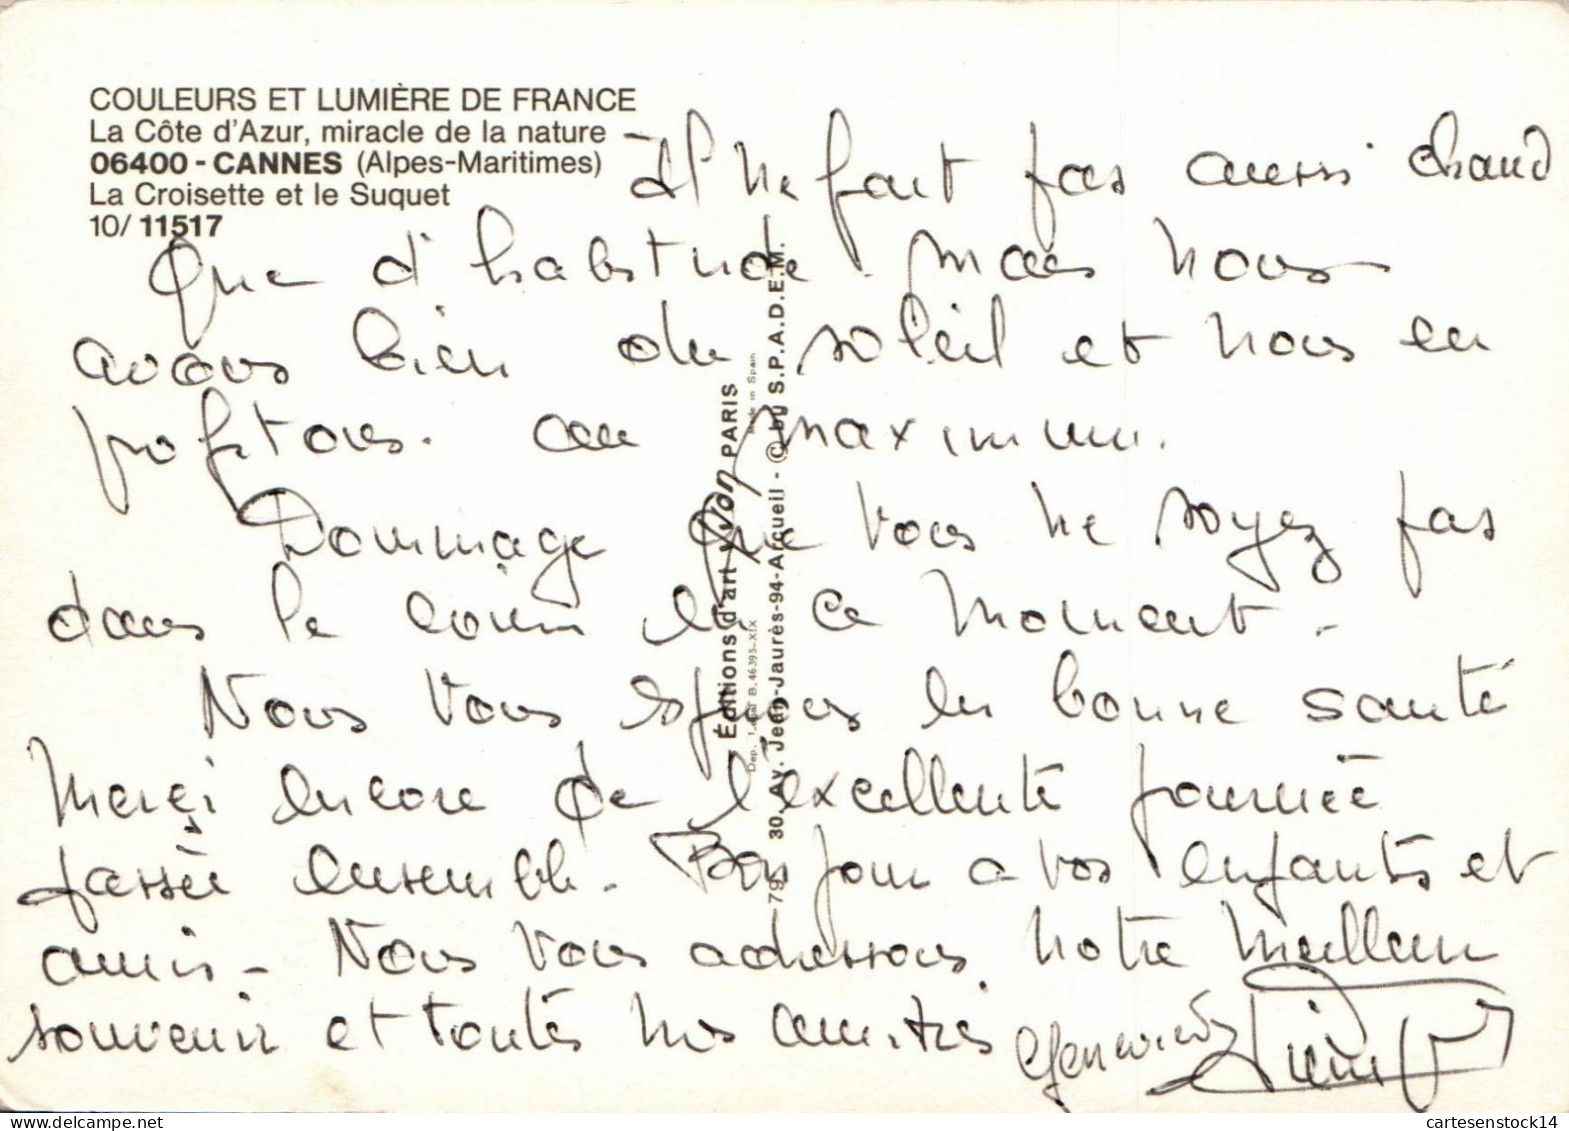 COULEURS ET LUMIÈRE DE FRANCE
La Côte d'Azur, miracle de la nature
06400 - CANNES (Alpes-Maritimes)
La Croisette et le Suquet
10/ 11517
Il ne fait pas aussi chaud
que d'habitude. mais nous
avons bien du soleil et nous en
profitons. au maximum.
Dommage que vous ne soyez pas
dans le coin en ce moment.
Nous vous espérons en bonne santé
Merci encore de l'excellente journée
passée ensemble. Bonjour a vos enfants et
amis - Nous vous adressons notre meilleur
souvenir et toutes nos amitiés
Geneviève
Éditions d'art Yvon PARIS
Dep. Legal B. 46395-XIX Made in Spain
30, Av. Jean-Jaurès-94-Arcueil - © by S.P.A.D.E.M.
79
cartesenstock14